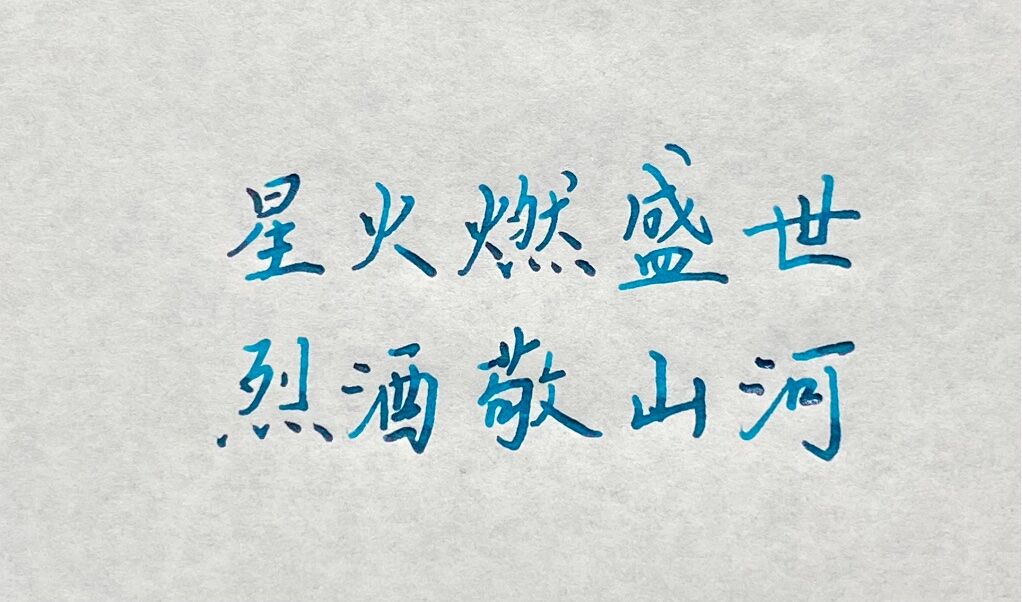 星火燃盛世
烈酒敬山河